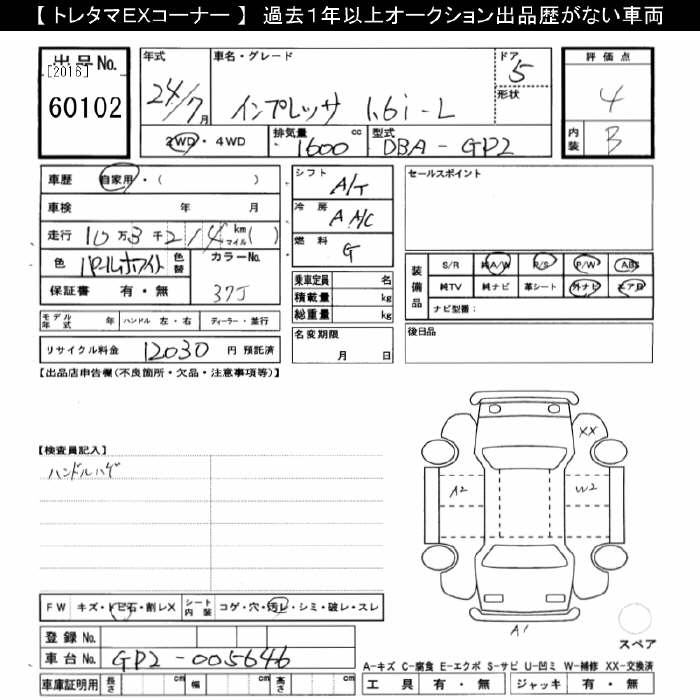 【 トレタマEXコーナー 】 過去1年以上オークション出品歴がない車両
出品No.
[2016]
60102
年式
24/7月
車名・グレード
インプレッサ 1.6i-L
ドア
5
形状
評価点
4
内装
B
2WD・4WD
排気量
1600 cc
型式
DBA - GP2
車歴 自家用・( )
車検 年 月
走行 10万3千214 km マイル( )
色 パールホワイト 色替 カラーNo.
37J
保証書 有・無
シフト
A/T
冷房
AAC
燃料
G
乗車定員 名
積載量 kg
総重量 kg
セールスポイント
装備品
S/R 純A/W P/S P/W ABS
純TV 純ナビ 革シート 外ナビ エアB
ナビ型番:
モデル年式 年 ハンドル 左・右 ディーラー・並行
リサイクル料金 12030 円 預託済
名変期限
月 日
後日品
【出品店申告欄(不良箇所・欠品・注意事項等)】
【検査員記入】
ハンドルハゲ
XX
A2
W2
A1
スペア
FW キズ・トビ石・割レX シート内装 コゲ・穴・汚レ・シミ・破レ・スレ
登録No.
車台No. GP2-005646
車庫証明用 長さ cm 幅 cm 高さ cm
A-キズ C-腐食 E-エクボ S-サビ U-凹ミ W-補修 XX-交換済
工具 有・無 ジャッキ 有・無